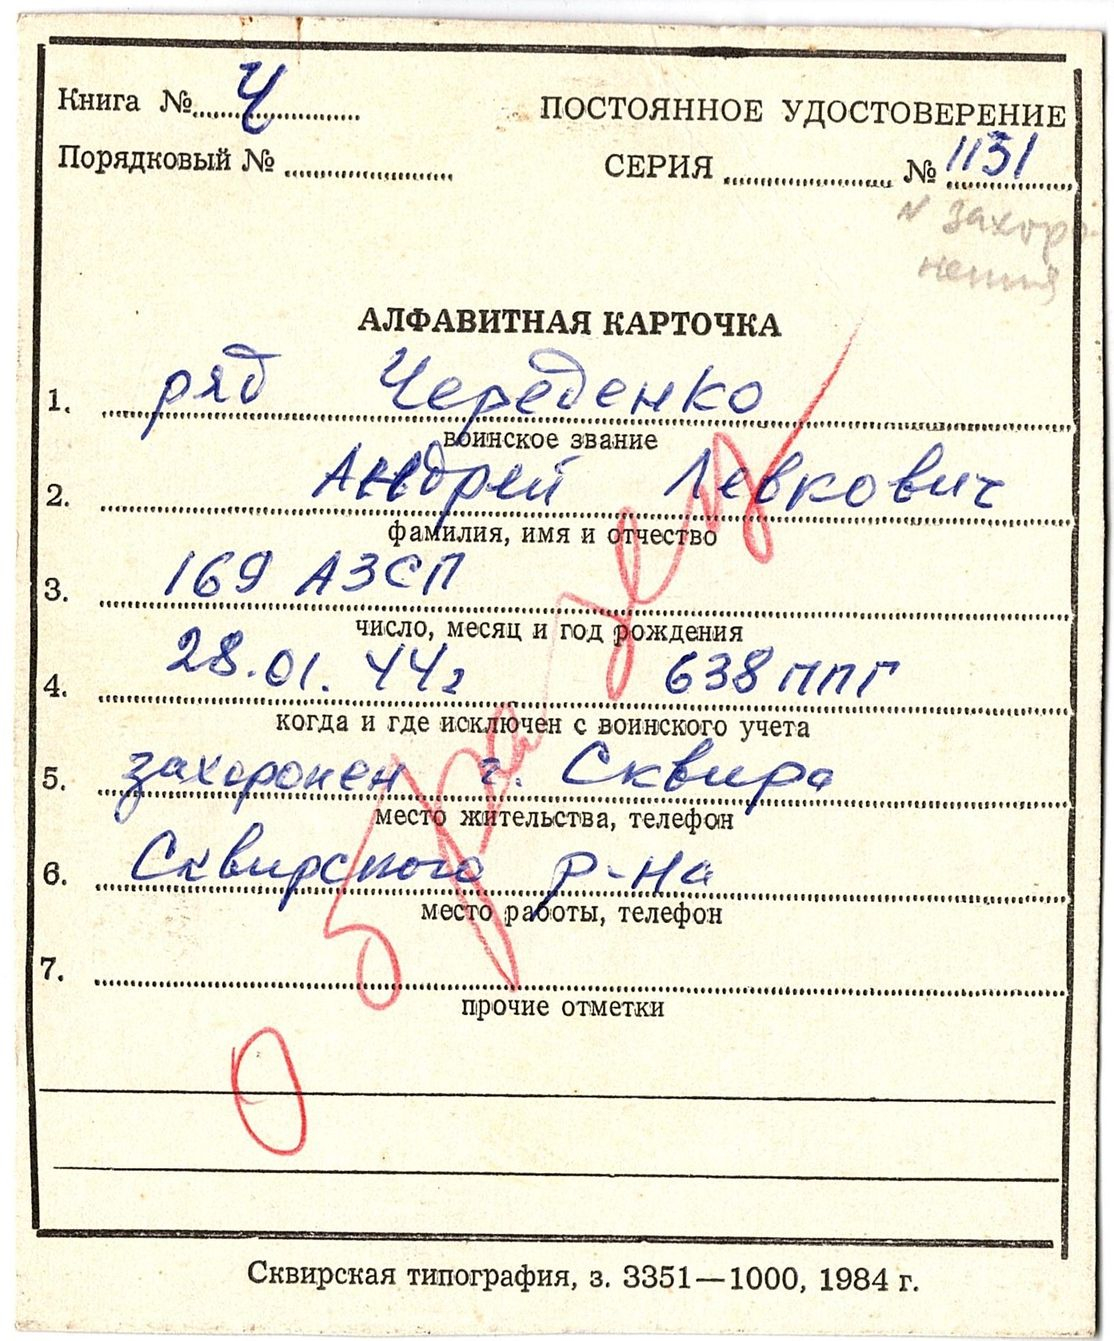 Книга № Ч
ПОСТОЯННОЕ УДОСТОВЕРЕНИЕ
Порядковый №
СЕРИЯ № 1131
№ захоро-
нения
АЛФАВИТНАЯ КАРТОЧКА
1. ряд Череденко
воинское звание
2. Андрей Левкович
фамилия, имя и отчество
3. 169 АЗСП
число, месяц и год рождения
4. 28.01.44г 638 ППГ
когда и где исключен с воинского учета
5. захоронен г. Сквира
место жительства, телефон
6. Сквирского р-на
место работы, телефон
7.
прочие отметки
Образец
Сквирская типография, з. 3351—1000, 1984 г.